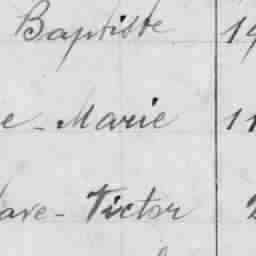 Baptiste 19
e-Marie 11
ave-Victor 2